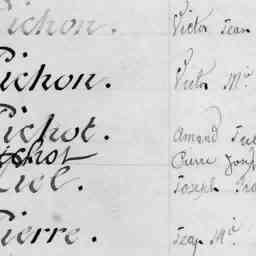 ichon. Victor Jean
ichon. Victor Mie
ichot. Amand
ichot Pierre Jose
iel. Joseph
ierre. Jean Mie